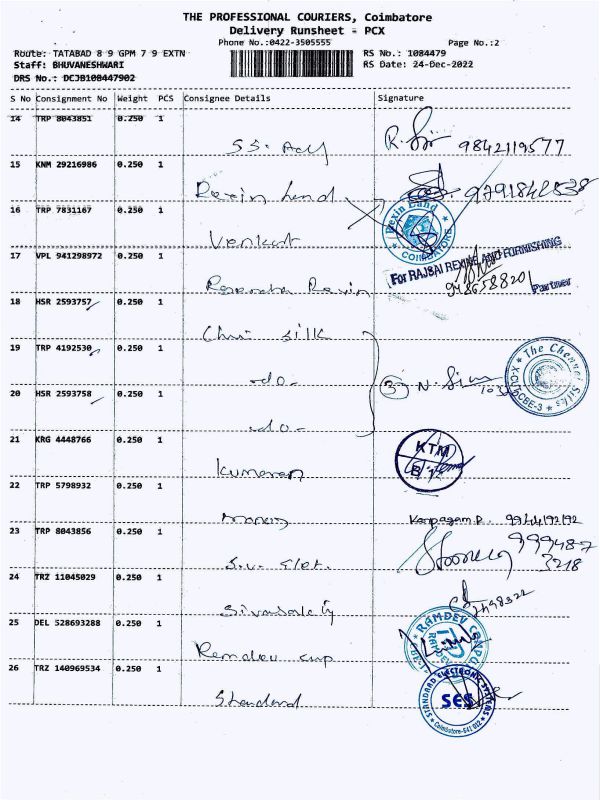 THE PROFESSIONAL COURIERS, Coimbatore
Delivery Runsheet - PCX
Phone No.:0422-3505555 Page No.:2
Route: TATABAD 8 9 GPM 7 9 EXTN RS No.: 1084479
Staff: BHUVANESHWARI RS Date: 24-Dec-2022
DRS No.: DCJB100447902
S No Consignment No Weight PCS Consignee Details Signature
14 TRP 8043851 0.250 1
9842119577
15 KNM 29216986 0.250 1
Rexin Land 9791842838
16 TRP 7831167 0.250 1
Rexin Land
COIMBATORE
Venkat
17 VPL 941298972 0.250 1
For RAJSAI REXINE AND FURNISHING
Partner
Rexin
18 HSR 2593757 0.250 1
silk
19 TRP 4192530 0.250 1
-do-
3 N.
The Chennai Silks
CBE-3
20 HSR 2593758 0.250 1
-do-
21 KRG 4448766 0.250 1
KTM
Kumaran
22 TRP 5798932 0.250 1
23 TRP 8043856 0.250 1
999487
3218
S.V. Elet.
24 TRZ 11045029 0.250 1
25 DEL 528693288 0.250 1
RAMDEV
Ramdev
26 TRZ 140969534 0.250 1
STANDARD ELECTRONIC SYSTEMS
SES
Standard